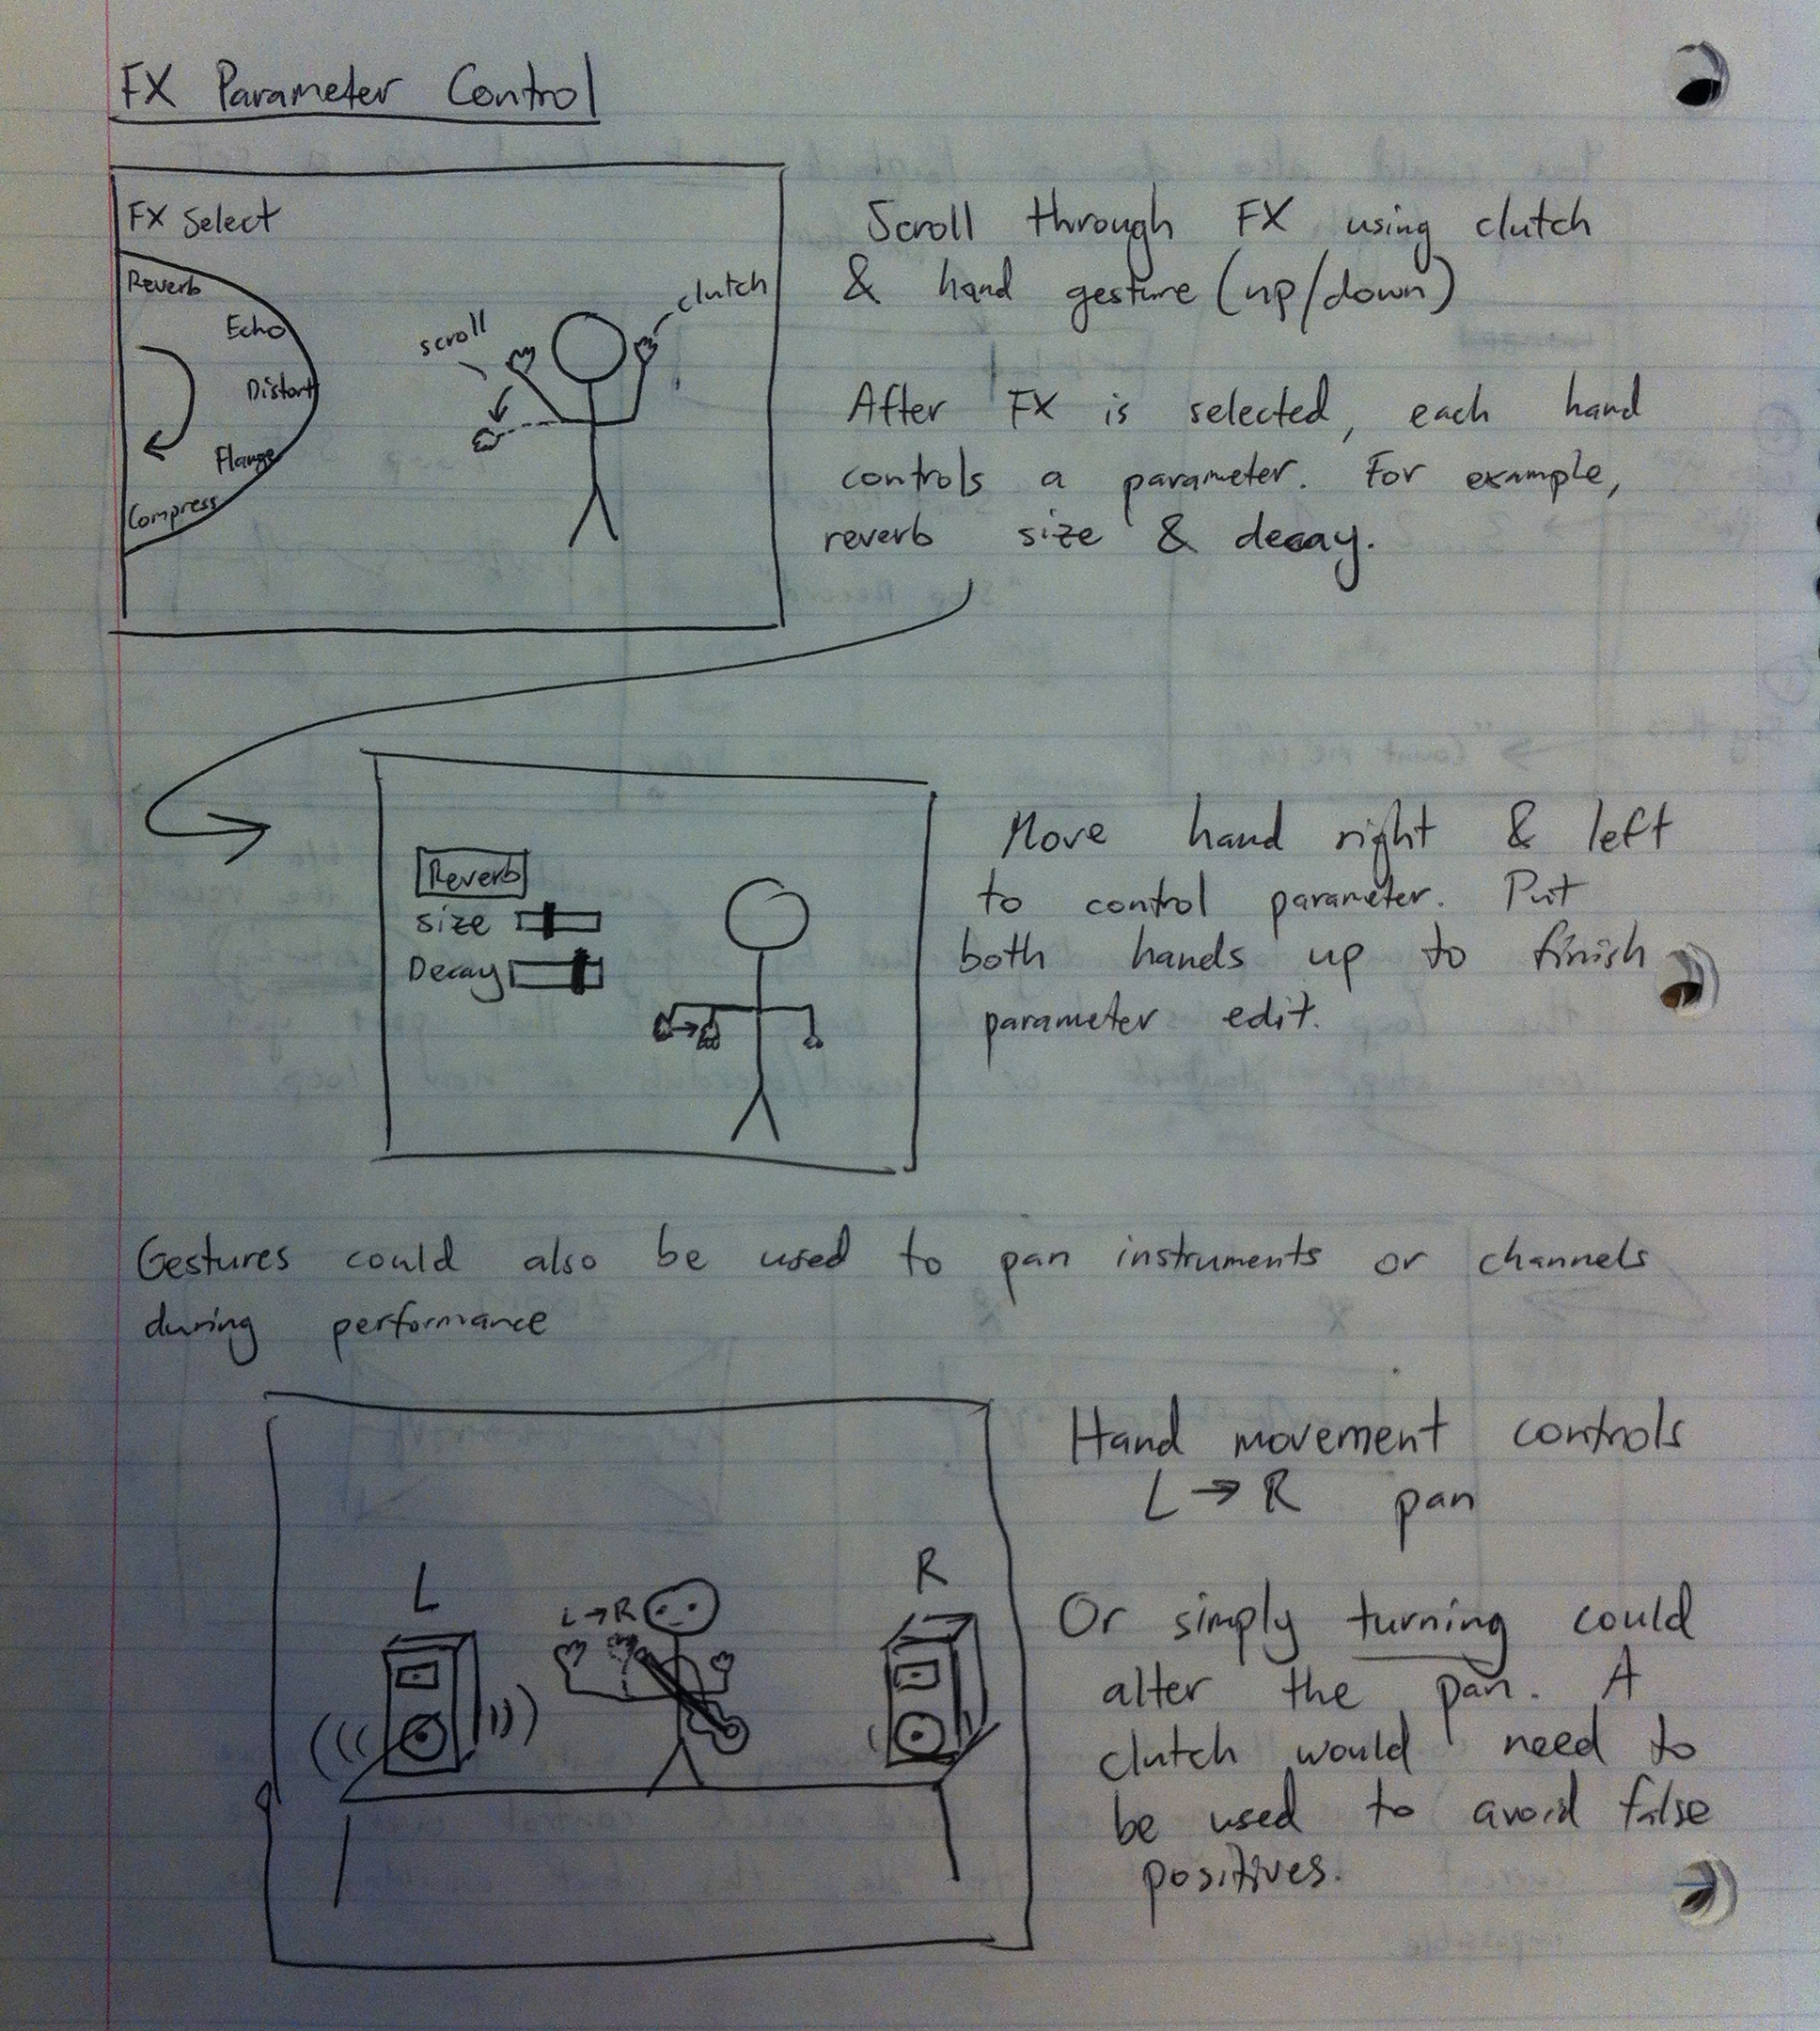 FX Parameter Control
FX Select
Reverb
Echo
Distort
Flange
Compress
scroll
clutch
Scroll through FX using clutch
& hand gesture (up/down)
After FX is selected, each hand
controls a parameter. For example,
reverb size & decay.
Reverb
size
Decay
Move hand right & left
to control parameter. Put
both hands up to finish
parameter edit.
Gestures could also be used to pan instruments or channels
during performance
L
L→R
R
Hand movement controls
L → R pan
Or simply turning could
alter the pan. A
clutch would need to
be used to avoid false
positives.